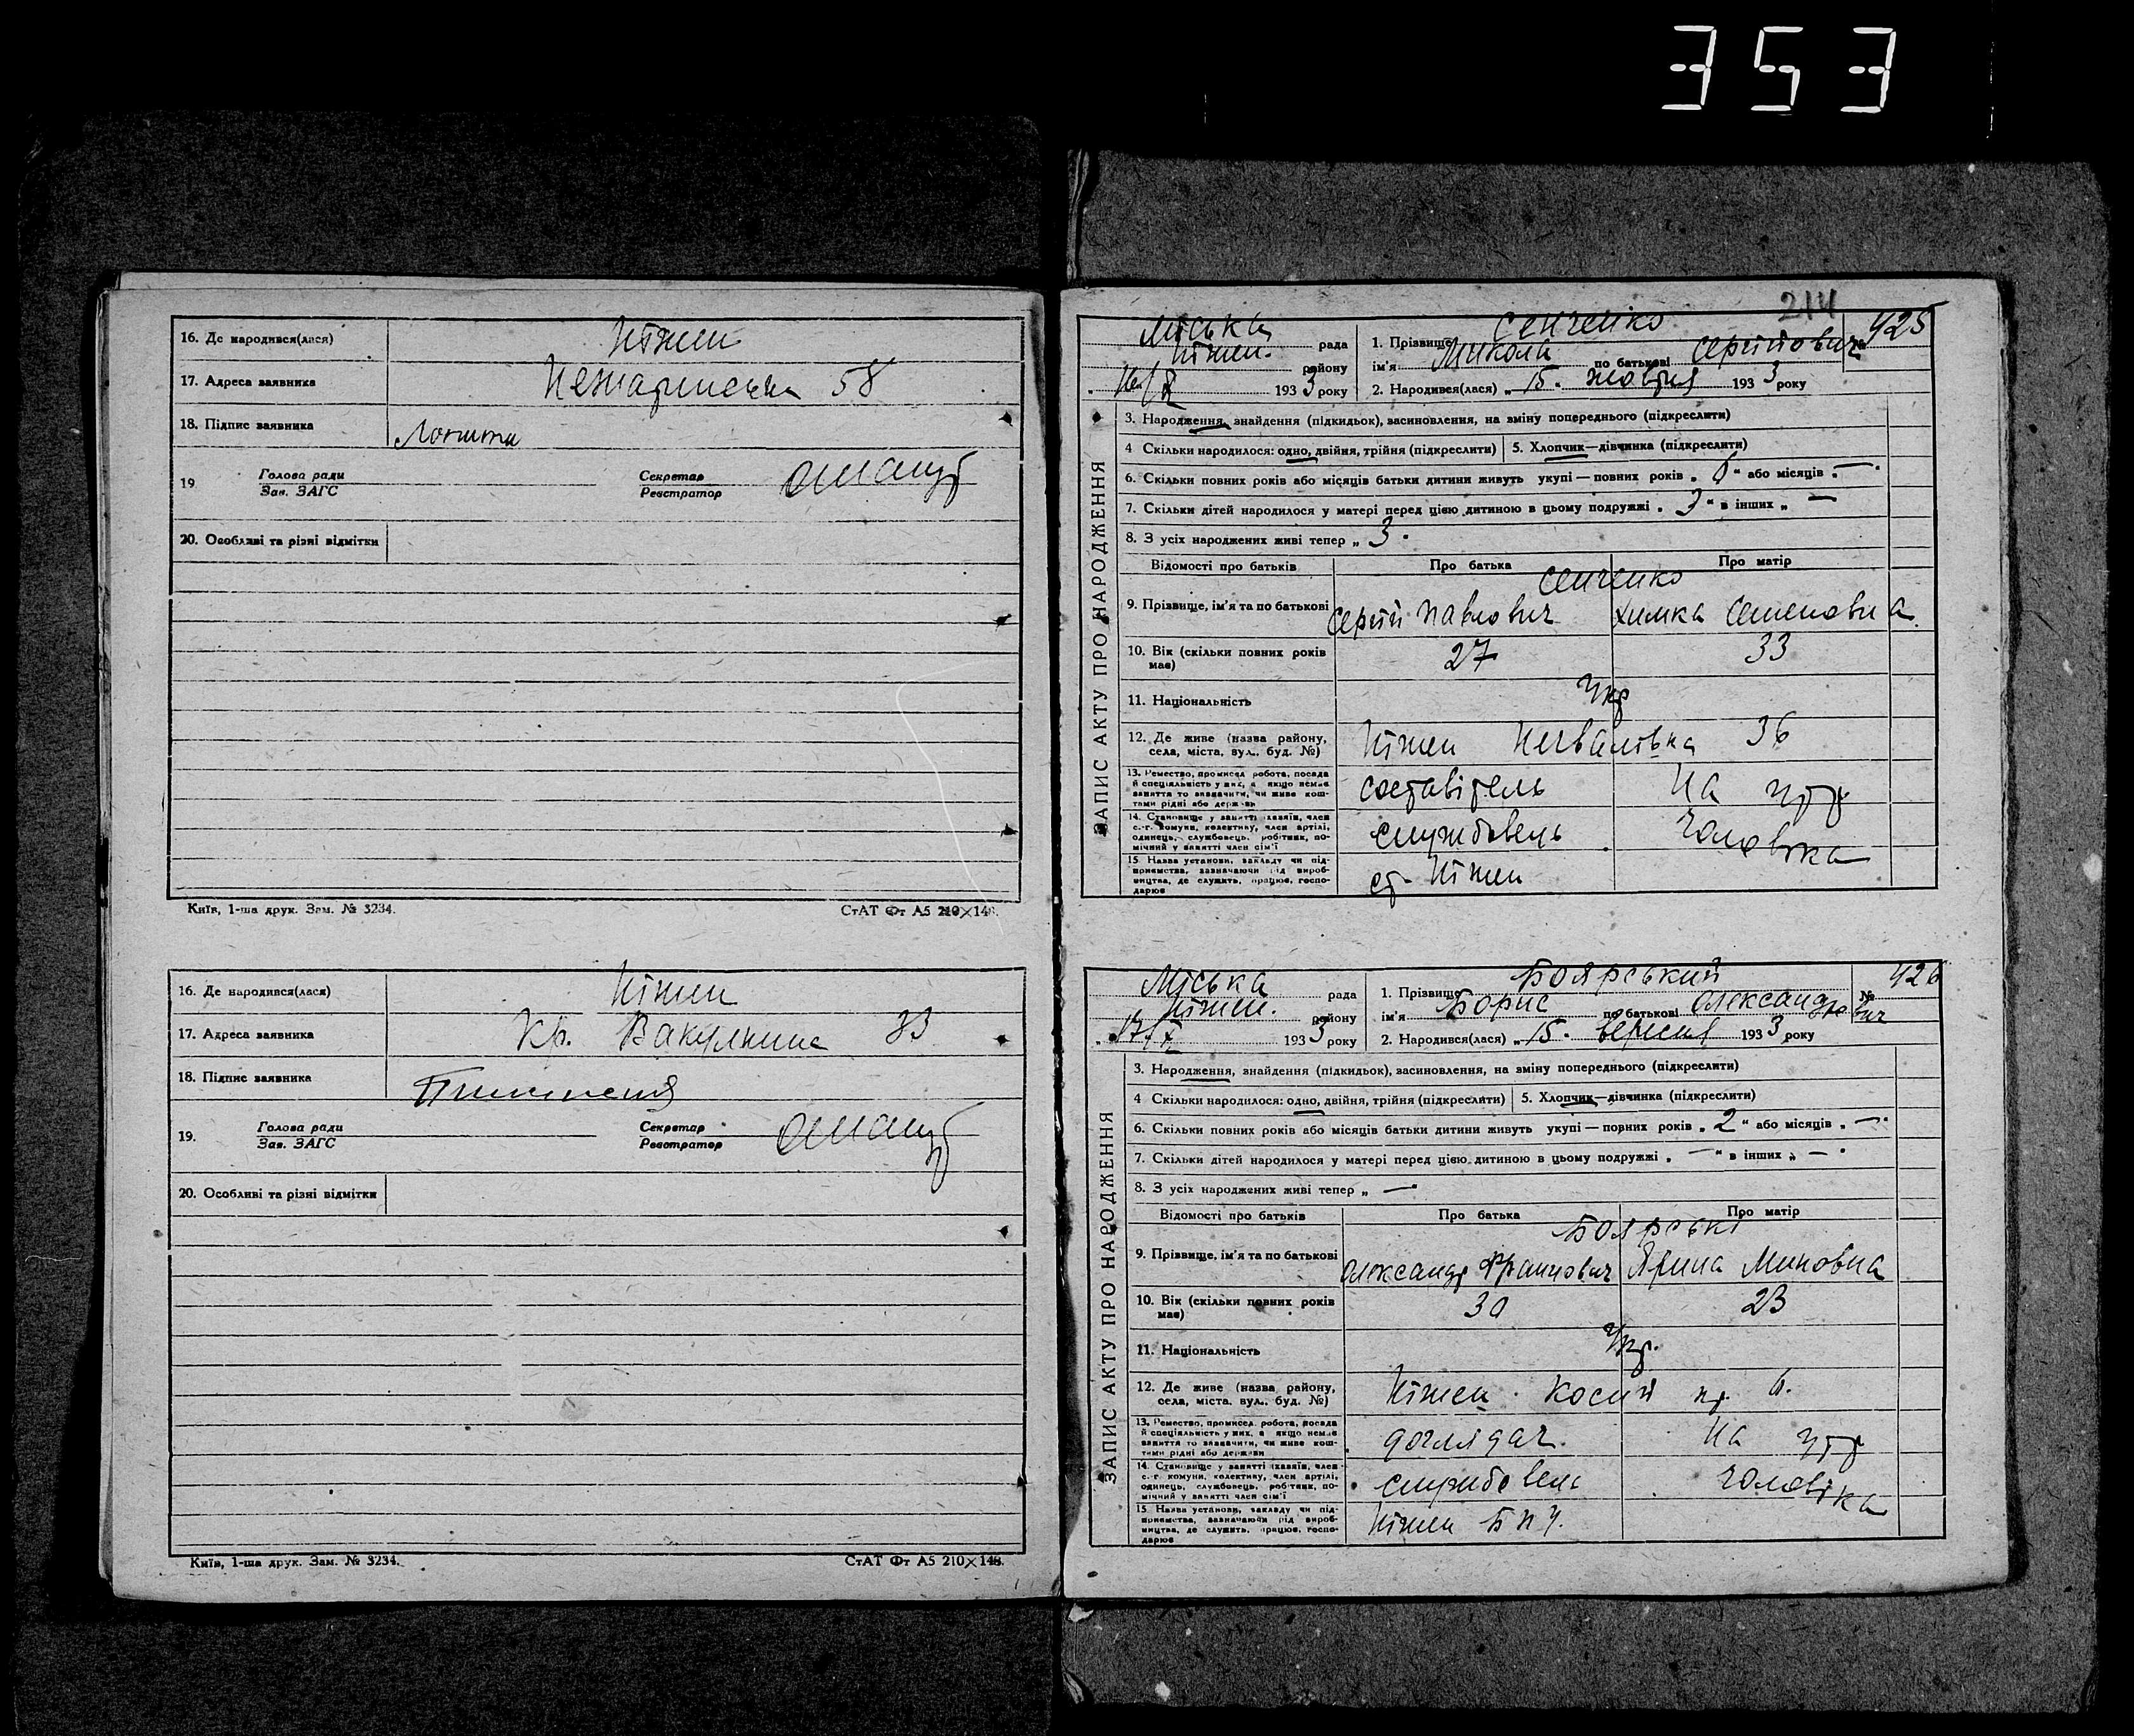 353
16. Де народився(лася) Ніжен
17. Адреса заявника 58
18. Підпис заявника
19 Голова ради Секретар
Зав. ЗАГС Реєстратор
20. Особливі та різні відмітки
Київ, 1-ша друк. Зам. № 3234. СтАТ Фт А5 210×148.
16. Де народився(лася) Ніжен
17. Адреса заявника Кр. 33
18. Підпис заявника
19. Голова ради Секретар
Зав. ЗАГС Реєстратор
20. Особливі та різні відмітки
Київ, 1-ша друк. Зам. № 3234. СтАТ Фт А5 210×148.
214
ЗАПИС АКТУ ПРО НАРОДЖЕННЯ
Міська рада 1. Прізвище Сенченко № 425
Ніжен. району ім'я Микола по батькові Сергійович
1933 року 2. Народився(лася) „ 15 " жовтня 1933 року
3. Народження, знайдення (підкидьок), засиновлення, на зміну попереднього (підкреслити)
4 Скільки народилося: одно, двійня, трійня (підкреслити) 5. Хлопчик—дівчинка (підкреслити)
6. Скільки повних років або місяців батьки дитини живуть укупі — повних років „ 6 " або місяців „ — "
7. Скільки дітей народилося у матері перед цією дитиною в цьому подружжі „ 3 " в інших „ —
8. З усіх народжених живі тепер „ 3 "
Відомості про батьків Про батька Про матір
Сенченко
9. Прізвище, ім'я та по батькові Сергій Павлович Химка Семеновна
10. Вік (скільки повних років має) 27 33
11. Національність Укр
12. Де живе (назва району, села, міста, вул., буд. №) Ніжен 36
13. Ремество, промисел, робота, посада й спеціяльність у них, а якщо немає заняття то зазначити, чи живе коштами рідні або держави составітель На утр
14. Становище у занятті (хазяїн, член с.-г. комуни, колективу, член артілі, одинець, службовець, робітник, помічний у занятті член сім'ї службовець Чоловіка
15 Назва установи, закладу чи підприємства, зазначаючи рід виробництва, де служить, працює, господарює ст. Ніжен
ЗАПИС АКТУ ПРО НАРОДЖЕННЯ
Міська рада 1. Прізвище Боярський № 426
Ніжен. району ім'я Борис по батькові Олександрович
„ 17/X 1933 року 2. Народився(лася) „ 15 " вересня 1933 року
3. Народження, знайдення (підкидьок), засиновлення, на зміну попереднього (підкреслити)
4 Скільки народилося: одно, двійня, трійня (підкреслити) 5. Хлопчик—дівчинка (підкреслити)
6. Скільки повних років або місяців батьки дитини живуть укупі — повних років „ 2 " або місяців „ — "
7. Скільки дітей народилося у матері перед цією дитиною в цьому подружжі „ — " в інших „ — "
8. З усіх народжених живі тепер „ — "
Відомості про батьків Про батька Про матір
Боярські
9. Прізвище, ім'я та по батькові Олександр Францович Ярина Миновна
10. Вік (скільки повних років має) 30 23
11. Національність Укр.
12. Де живе (назва району, села, міста, вул., буд. №) Ніжен 6.
13. Ремество, промисел, робота, посада й спеціяльність у них, а якщо немає заняття то зазначити, чи живе коштами рідні або держави доглядач. На утр
14. Становище у занятті (хазяїн, член с.-г. комуни, колективу, член артілі, одинець, службовець, робітник, помічний у занятті член сім'ї службовець Чоловіка
15 Назва установи, закладу чи підприємства, зазначаючи рід виробництва, де служить, працює, господарює Ніжен